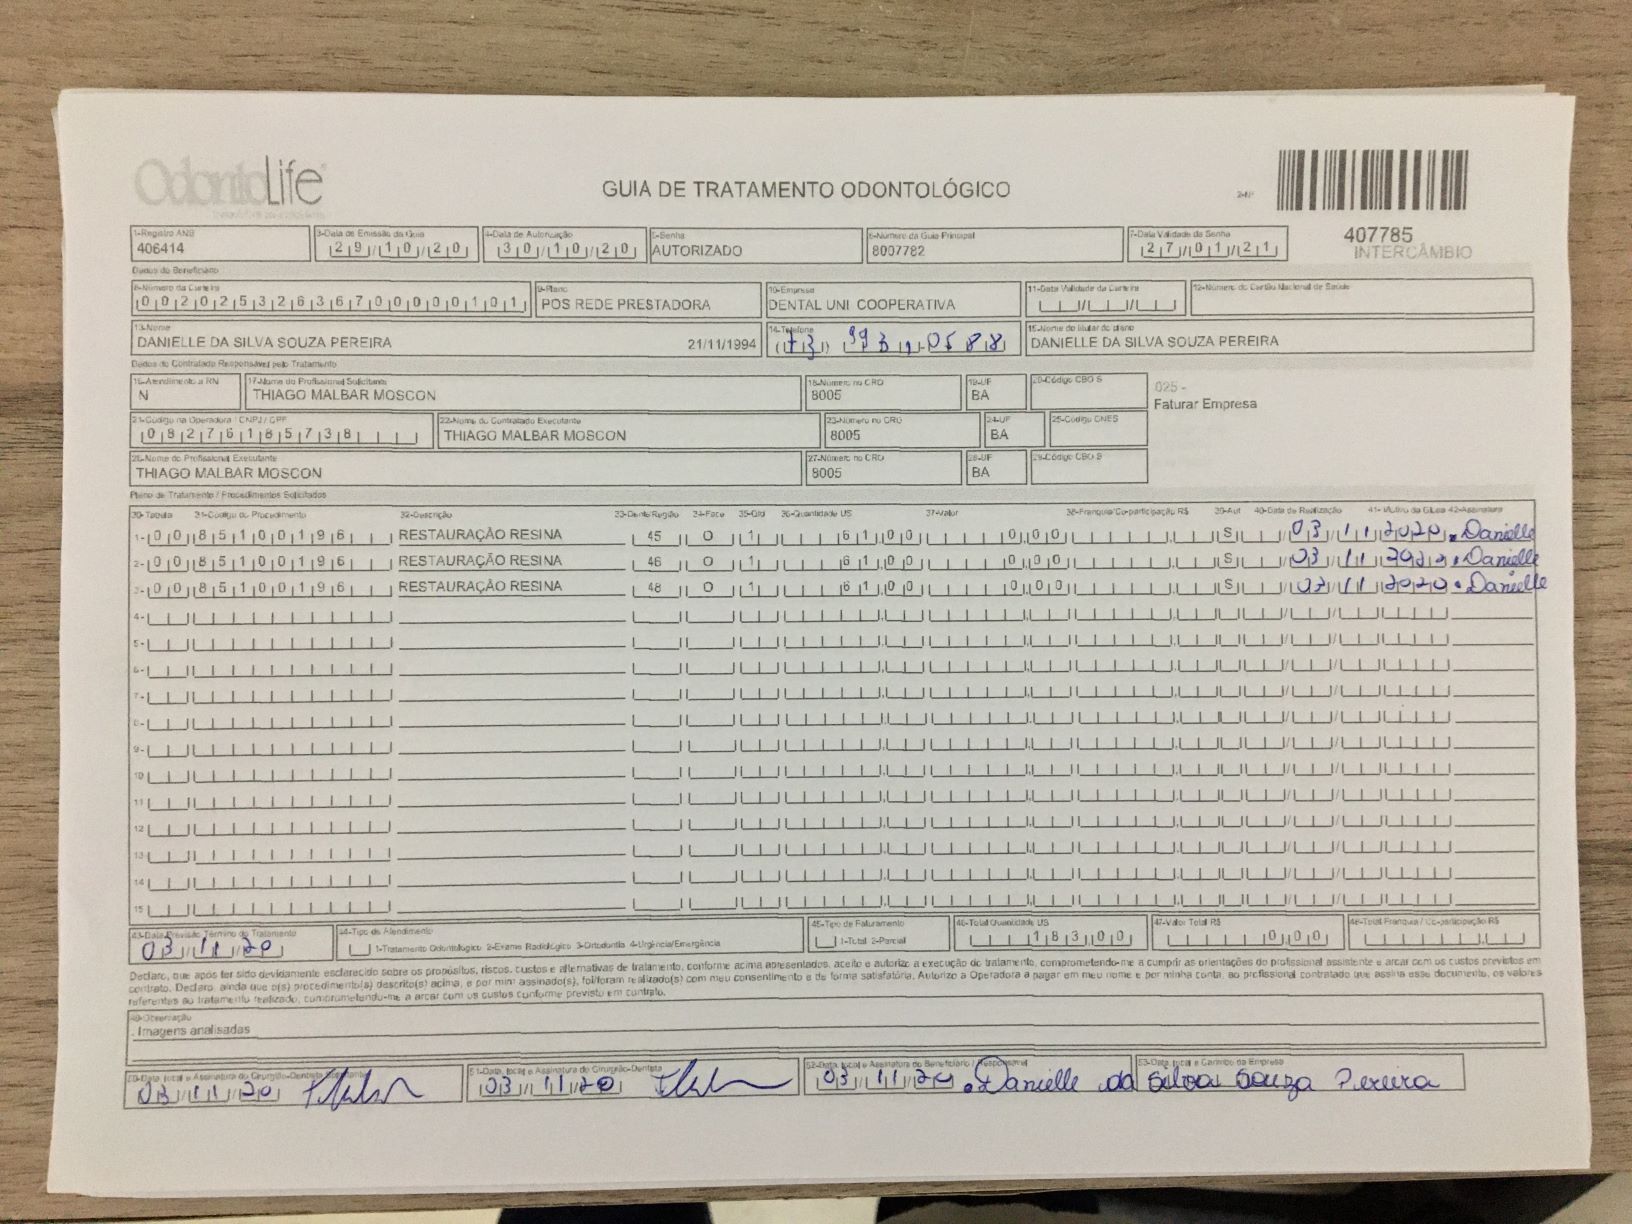 OdontoLife
GUIA DE TRATAMENTO ODONTOLÓGICO
2-Nº
407785
INTERCÂMBIO
1-Registro ANS
406414
3-Data de Emissão da Guia
29/10/20
4-Data de Autorização
30/10/20
5-Senha
AUTORIZADO
6-Número da Guia Principal
8007782
7-Data Validade da Senha
27/01/21
Dados do Beneficiário
8-Número da Carteira
00202532636700000101
9-Plano
POS REDE PRESTADORA
10-Empresa
DENTAL UNI COOPERATIVA
11-Data Validade da Carteira
12-Número do Cartão Nacional de Saúde
13-Nome
DANIELLE DA SILVA SOUZA PEREIRA 21/11/1994
14-Telefone
(73)
15-Nome do titular do plano
DANIELLE DA SILVA SOUZA PEREIRA
Dados do Contratado Responsável pelo Tratamento
16-Atendimento a RN
N
17-Nome do Profissional Solicitante
THIAGO MALBAR MOSCON
18-Número no CRO
8005
19-UF
BA
20-Código CBO S
025 -
Faturar Empresa
21-Código na Operadora / CNPJ / CPF
08276185738
22-Nome do Contratado Executante
THIAGO MALBAR MOSCON
23-Número no CRO
8005
24-UF
BA
25-Código CNES
26-Nome do Profissional Executante
THIAGO MALBAR MOSCON
27-Número no CRO
8005
28-UF
BA
29-Código CBO S
Plano de Tratamento / Procedimentos Solicitados
30-Tabela 31-Código do Procedimento 32-Descrição 33-Dente/Região 34-Face 35-Qtd 36-Quantidade US 37-Valor 38-Franquia/Co-participação R$ 39-Aut 40-Data de Realização 41-Motivo da Glosa 42-Assinatura
1- 00 85100196 RESTAURAÇÃO RESINA 45 O 1 61,00 0,00 S 03/11/2020 Danielle
2- 00 85100196 RESTAURAÇÃO RESINA 46 O 1 61,00 0,00 S 03/11/2020 Danielle
3- 00 85100196 RESTAURAÇÃO RESINA 48 O 1 61,00 0,00 S 03/11/2020 Danielle
4-
5-
6-
7-
8-
9-
10
11
12
13
14
15
43-Data Previsão Término do Tratamento
03/11/20
44-Tipo de Atendimento
1-Tratamento Odontológico 2-Exame Radiológico 3-Ortodontia 4-Urgência/Emergência
45-Tipo de Faturamento
1-Total 2-Parcial
46-Total Quantidade US
183,00
47-Valor Total R$
0,00
48-Total Franquia / Co-participação R$
Declaro, que após ter sido devidamente esclarecido sobre os propósitos, riscos, custos e alternativas de tratamento, conforme acima apresentados, aceito e autorizo a execução do tratamento, comprometendo-me a cumprir as orientações do profissional assistente e arcar com os custos previstos em
contrato. Declaro, ainda que o(s) procedimento(s) descrito(s) acima, e por mim assinado(s), foi/foram realizado(s) com meu consentimento e de forma satisfatória. Autorizo a Operadora a pagar em meu nome e por minha conta, ao profissional contratado que assina esse documento, os valores
referentes ao tratamento realizado, comprometendo-me a arcar com os custos conforme previsto em contrato.
49-Observação
. Imagens analisadas
50-Data, local e Assinatura do Cirurgião-Dentista Solicitante
03/11/20
51-Data, local e Assinatura do Cirurgião-Dentista
03/11/20
52-Data, local e Assinatura do Beneficiário / Responsável
03/11/20 Danielle da Silva Souza Pereira
53-Data, local e Carimbo da Empresa